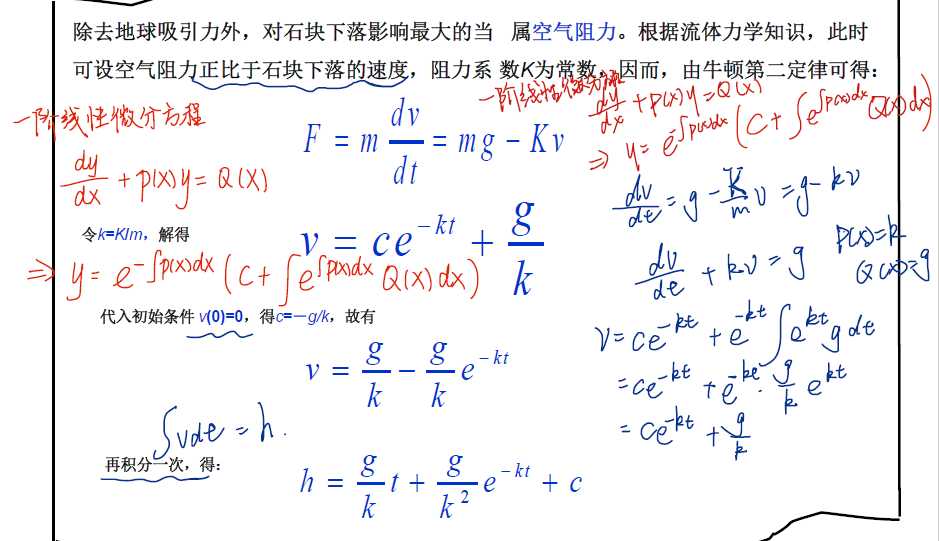 除去地球吸引力外，对石块下落影响最大的当 属空气阻力。根据流体力学知识，此时
可设空气阻力正比于石块下落的速度，阻力系 数K为常数。因而，由牛顿第二定律可得：
一阶线性微分方程
dy/dx + p(x)y = Q(x)
F = m dv/dt = mg − Kv
一阶线性微分方程
dy/dx + p(x)y = Q(x)
⇒ y = e^{-∫p(x)dx} (C + ∫e^{∫p(x)dx} Q(x)dx)
令k=K/m，解得
v = ce^{−kt} + g/k
⇒ y = e^{-∫p(x)dx} (C + ∫e^{∫p(x)dx} Q(x)dx)
dv/dt = g − K/m v = g − kv
dv/dt + kv = g
P(x) = k
Q(x) = g
代入初始条件 v(0)=0，得c=－g/k，故有
v = g/k − g/k e^{−kt}
v = ce^{-kt} + e^{-kt} ∫e^{kt} g dt
= ce^{-kt} + e^{-kt} · g/k e^{kt}
= ce^{-kt} + g/k
∫vdt = h.
再积分一次，得：
h = g/k t + g/k² e^{−kt} + c